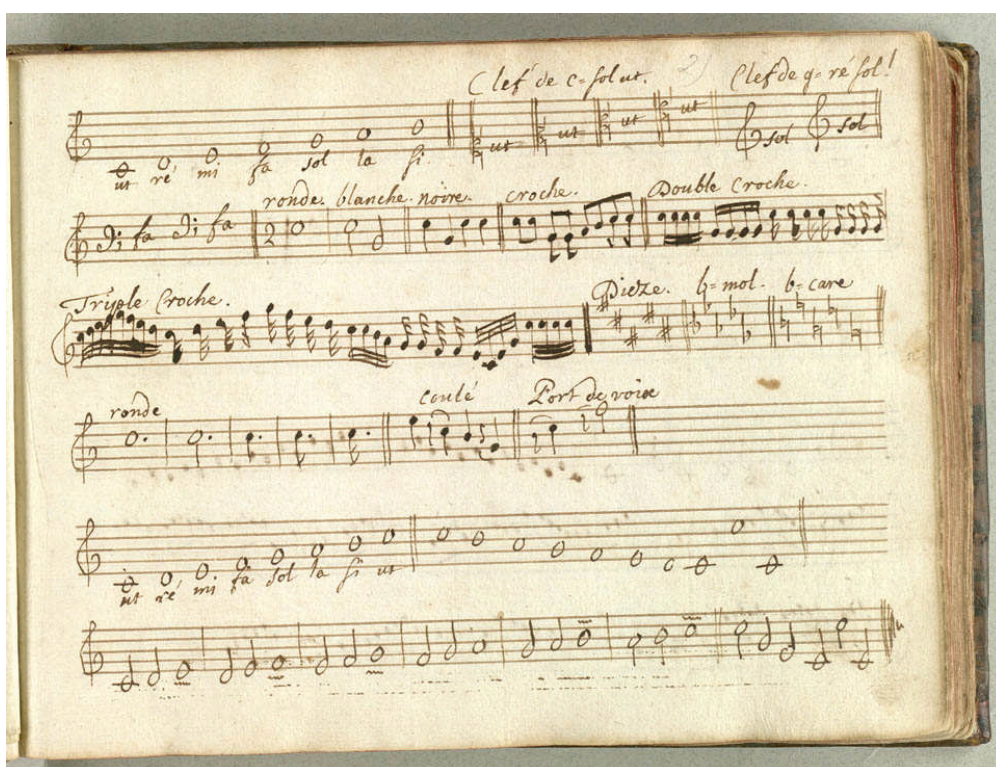 Clef de c=sol ut. 2) Clef de g=ré sol!
ut ré mi fa sol la si ut ut ut ut sol sol
ronde. blanche. noire. croche. Double Croche.
fa fa 2
Triple Croche. Dieze. b=mol. b=care
ronde coulé Port de voix
ut ré mi fa sol la si ut